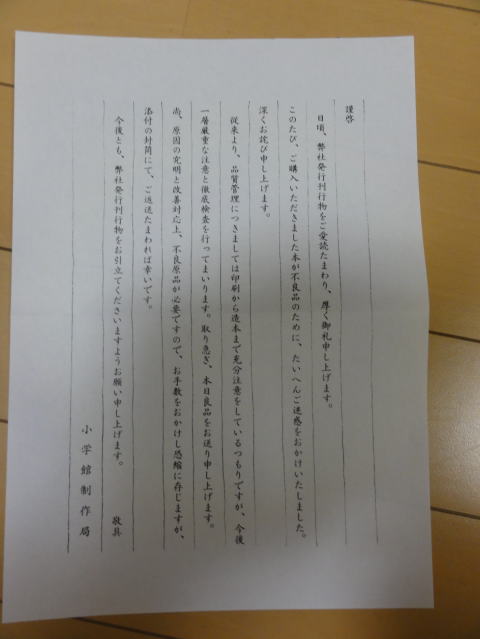 謹啓
日頃、弊社発行刊行物をご愛読たまわり、厚く御礼申し上げます。
このたび、ご購入いただきました本が不良品のために、たいへんご迷惑をおかけいたしました。
深くお詫び申し上げます。
従来より、品質管理につきましては印刷から造本まで充分注意をしているつもりですが、今後
一層厳重な注意と徹底検査を行ってまいります。取り急ぎ、本日良品をお送り申し上げます。
尚、原因の究明と改善対応上、不良原品が必要ですので、お手数をおかけし恐縮に存じますが、
添付の封筒にて、ご返送たまわれば幸いです。
今後とも、弊社発行刊行物をお引立てくださいますようお願い申し上げます。
敬具
小学館制作局